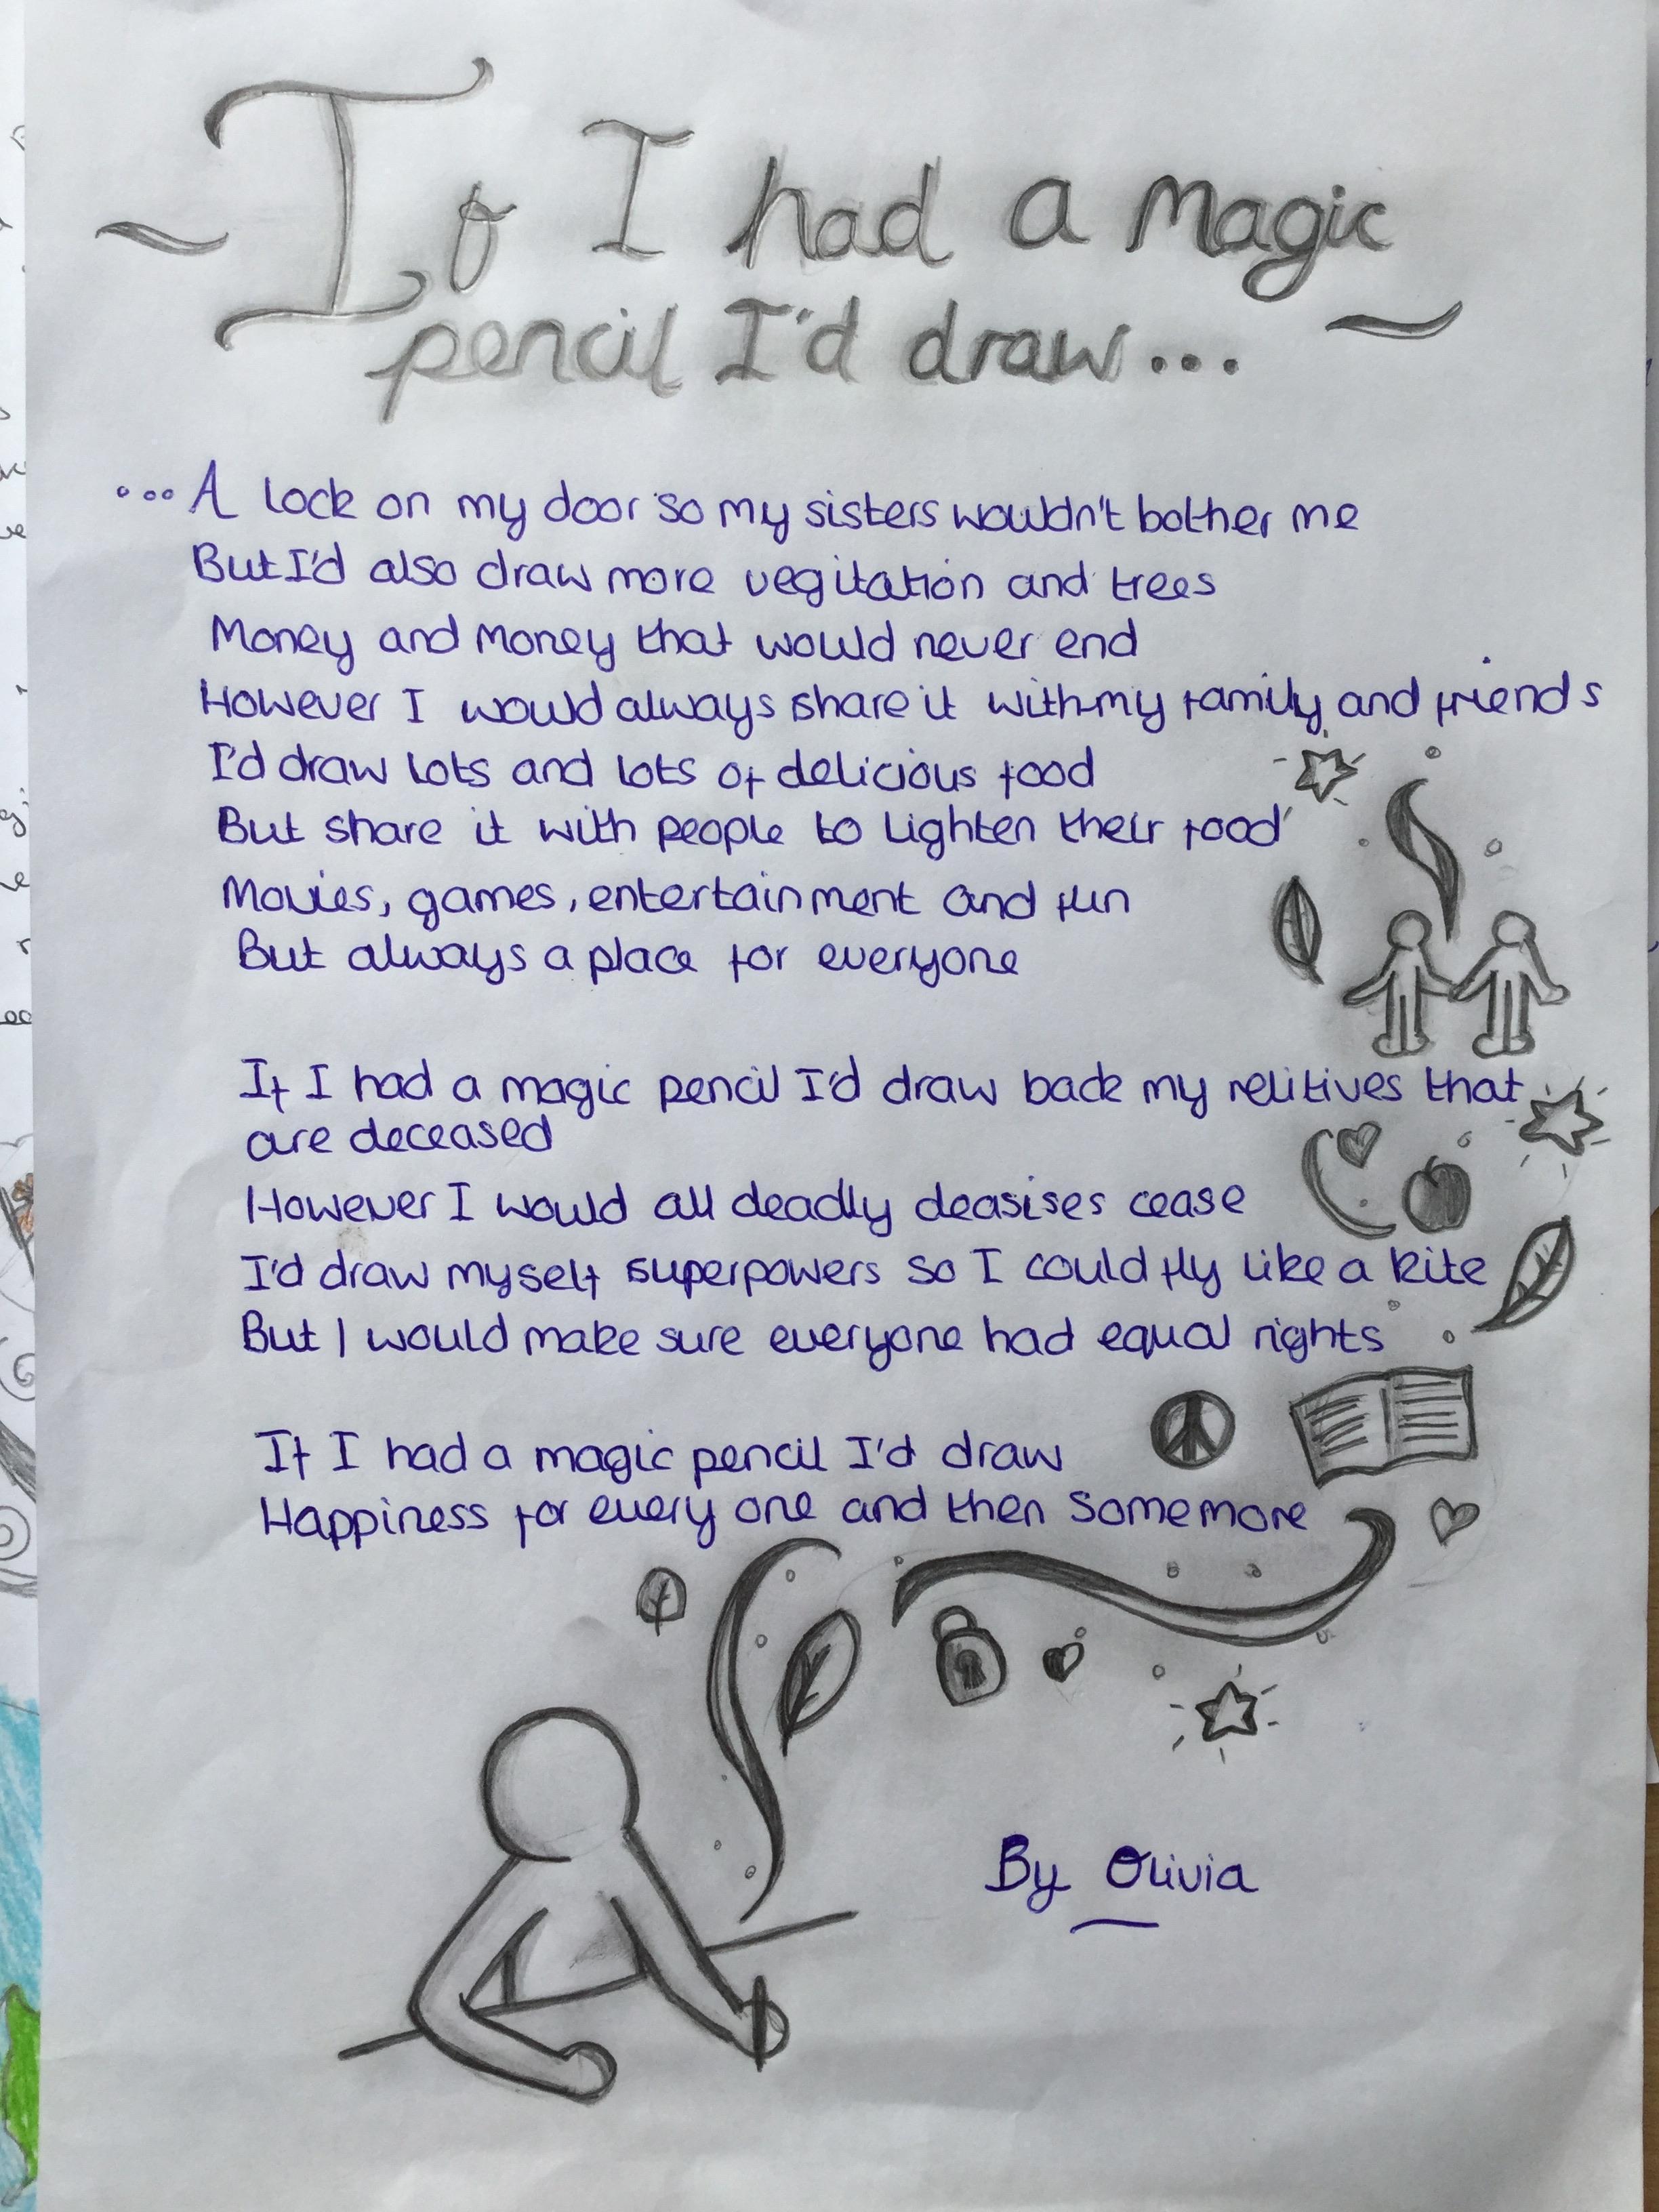 ~ If I had a magic
pencil I'd draw... ~
...A lock on my door so my sisters wouldn't bother me
But I'd also draw more vegitation and trees
Money and money that would never end
However I would always share it with my family and friends
I'd draw lots and lots of delicious food
But share it with people to lighten their food
Movies, games, entertainment and fun
But always a place for everyone
If I had a magic pencil I'd draw back my relitives that
are deceased
However I would all deadly deasises cease
I'd draw myself superpowers so I could fly like a kite
But I would make sure everyone had equal rights
If I had a magic pencil I'd draw
Happiness for every one and then some more
By Olivia